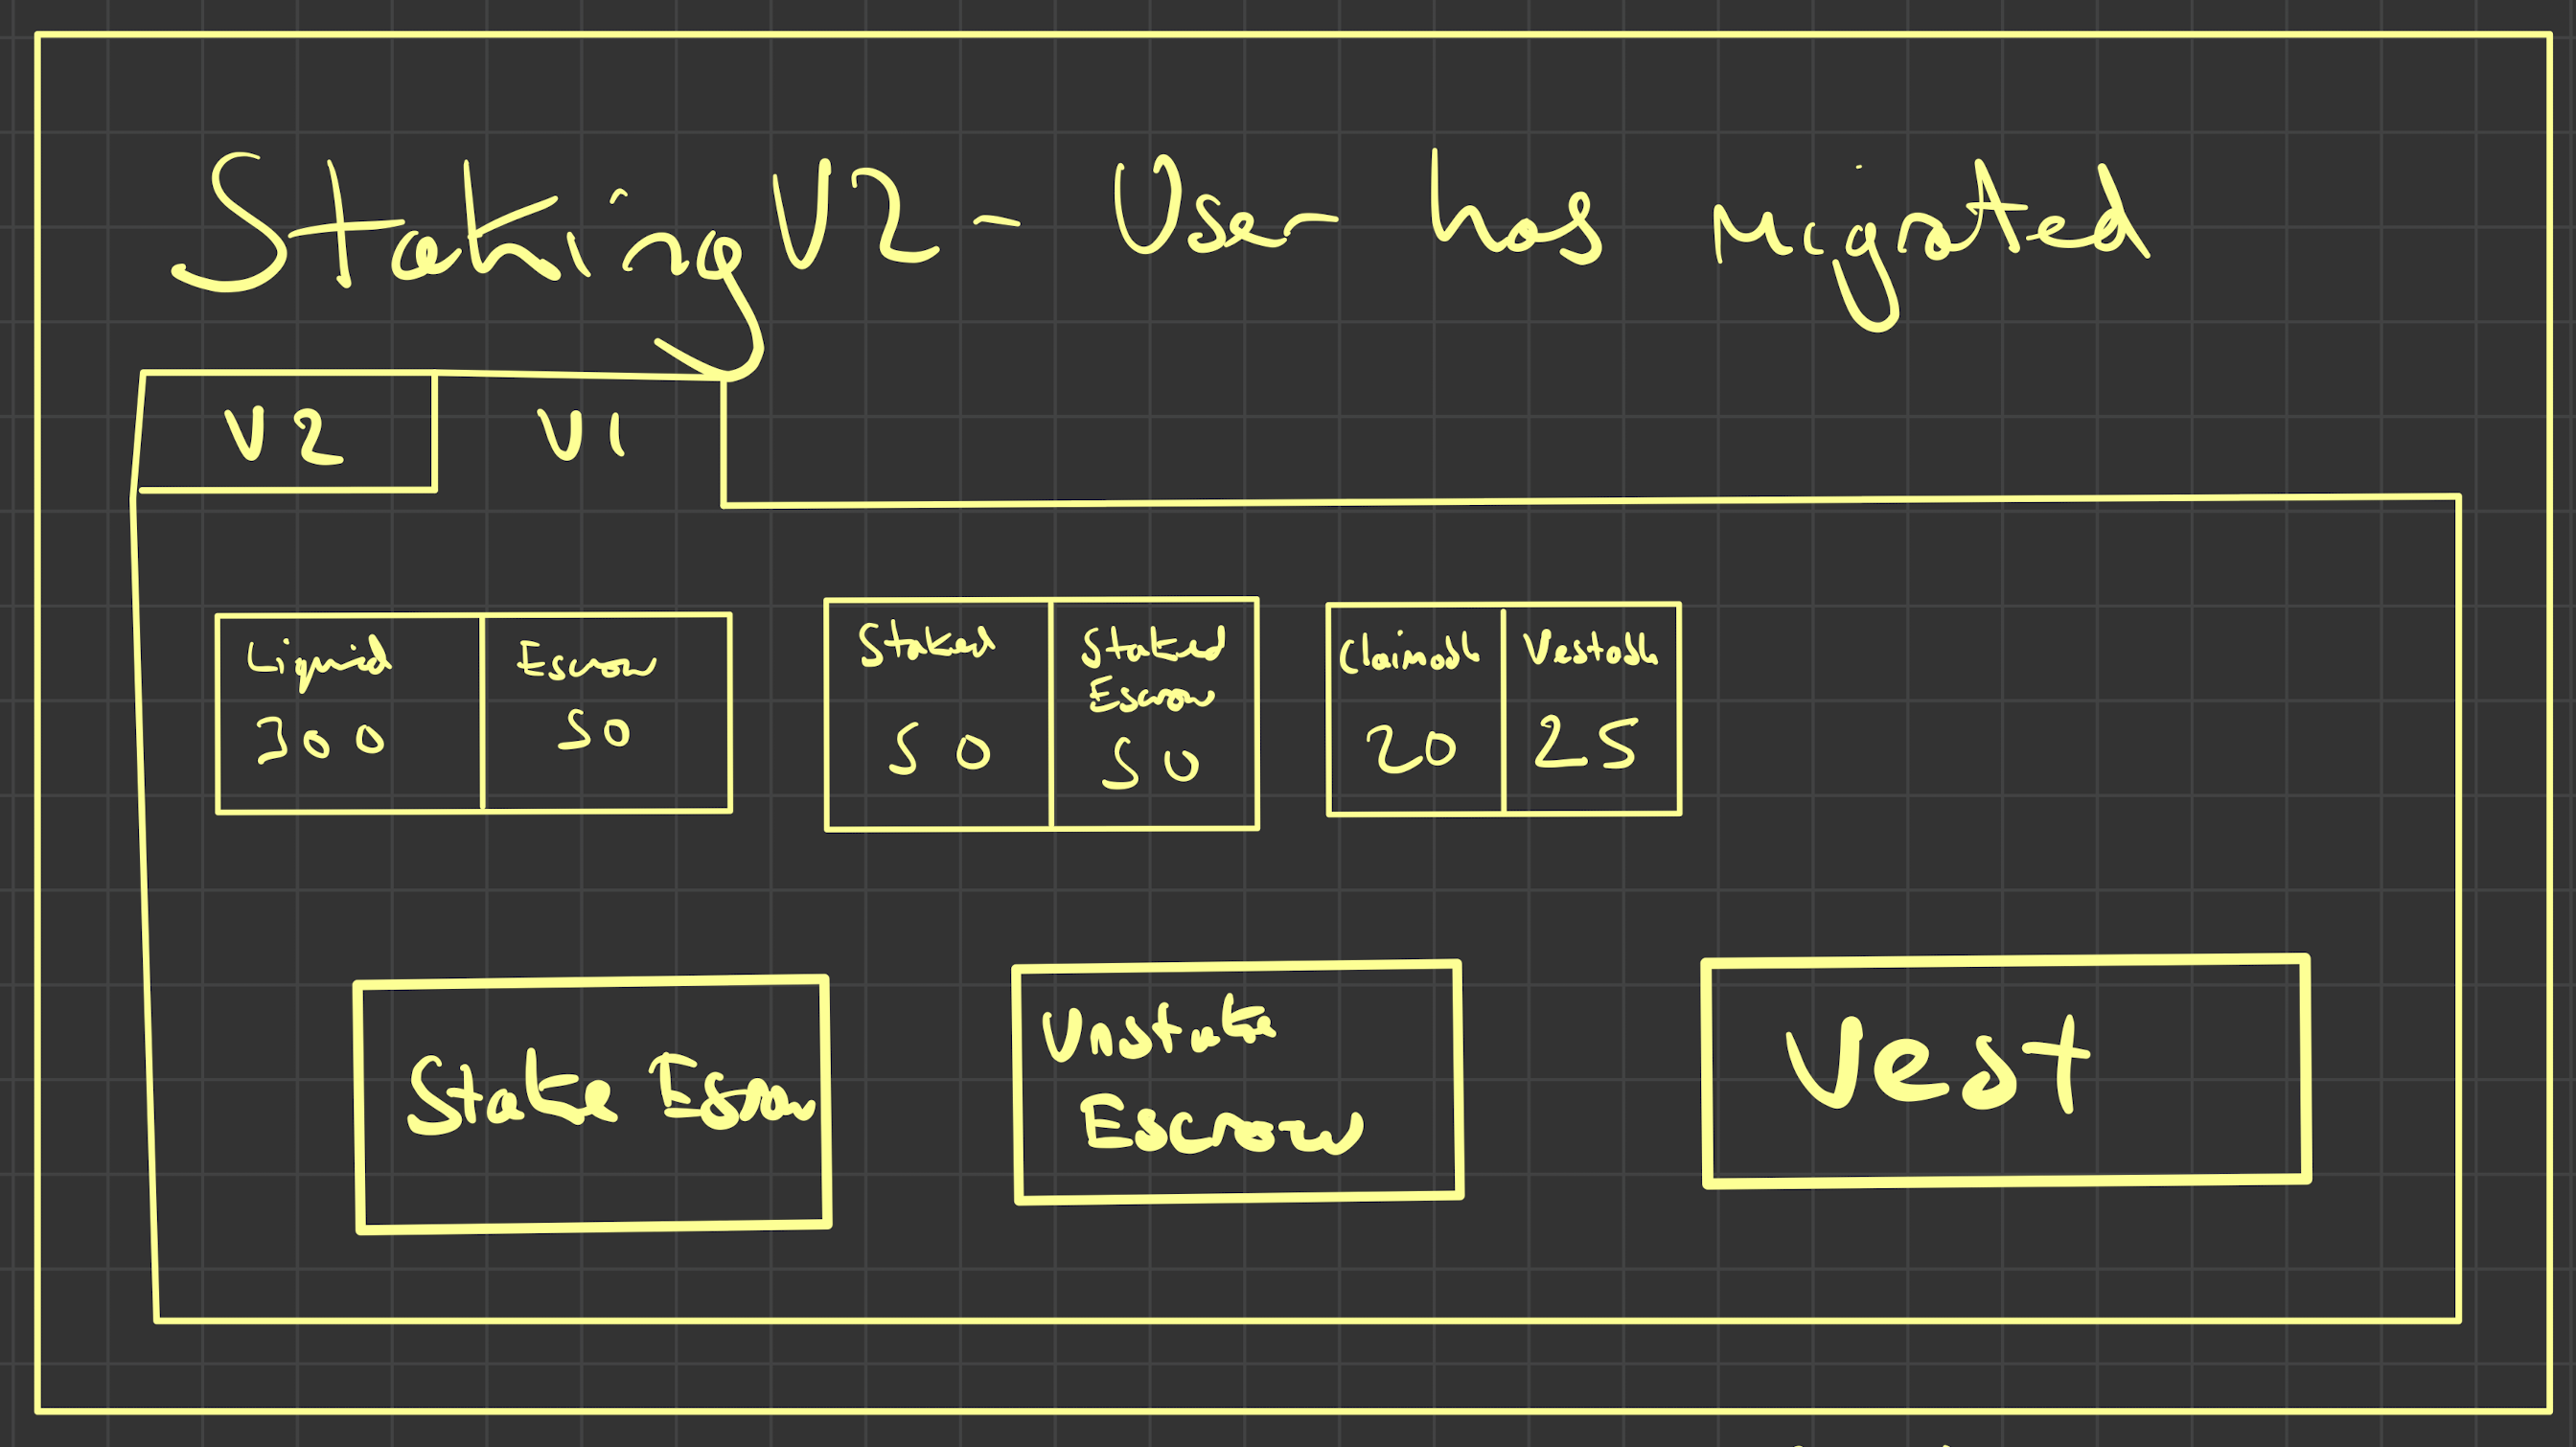 Staking V2 - User has migrated
V2 V1
Liquid Escrow
300 50
Staked Staked
Escrow
50 50
Claimabl Vestabl
20 25
Stake Escrow
Unstake
Escrow
Vest